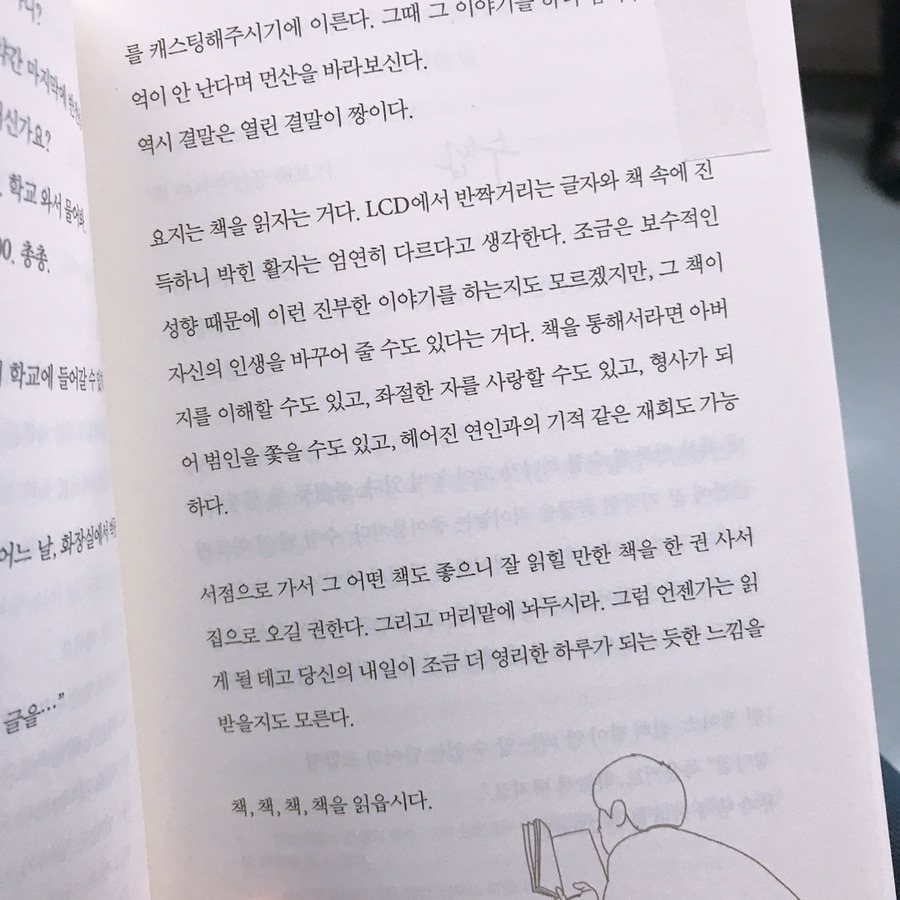 까?
약간 마지막에
신가요?
학교 와서 물어봐.
00. 총총.
학교에 들어갈 수
어느 날, 화장실에서
글을…”
를 캐스팅해주시기에 이른다. 그때 그 이야기를
억이 안 난다며 먼산을 바라보신다.
역시 결말은 열린 결말이 짱이다.
요지는 책을 읽자는 거다. LCD에서 반짝거리는 글자와 책 속에 진
득하니 박힌 활자는 엄연히 다르다고 생각한다. 조금은 보수적인
성향 때문에 이런 진부한 이야기를 하는지도 모르겠지만, 그 책이
자신의 인생을 바꾸어 줄 수도 있다는 거다. 책을 통해서라면 아버
지를 이해할 수도 있고, 좌절한 자를 사랑할 수도 있고, 형사가 되
어 범인을 쫓을 수도 있고, 헤어진 연인과의 기적 같은 재회도 가능
하다.
서점으로 가서 그 어떤 책도 좋으니 잘 읽힐 만한 책을 한 권 사서
집으로 오길 권한다. 그리고 머리맡에 놔두시라. 그럼 언젠가는 읽
게 될 테고 당신의 내일이 조금 더 영리한 하루가 되는 듯한 느낌을
받을지도 모른다.
책, 책, 책, 책을 읽읍시다.